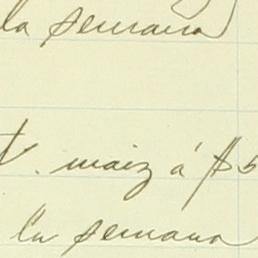 la semana
t. maiz á $5
la semana